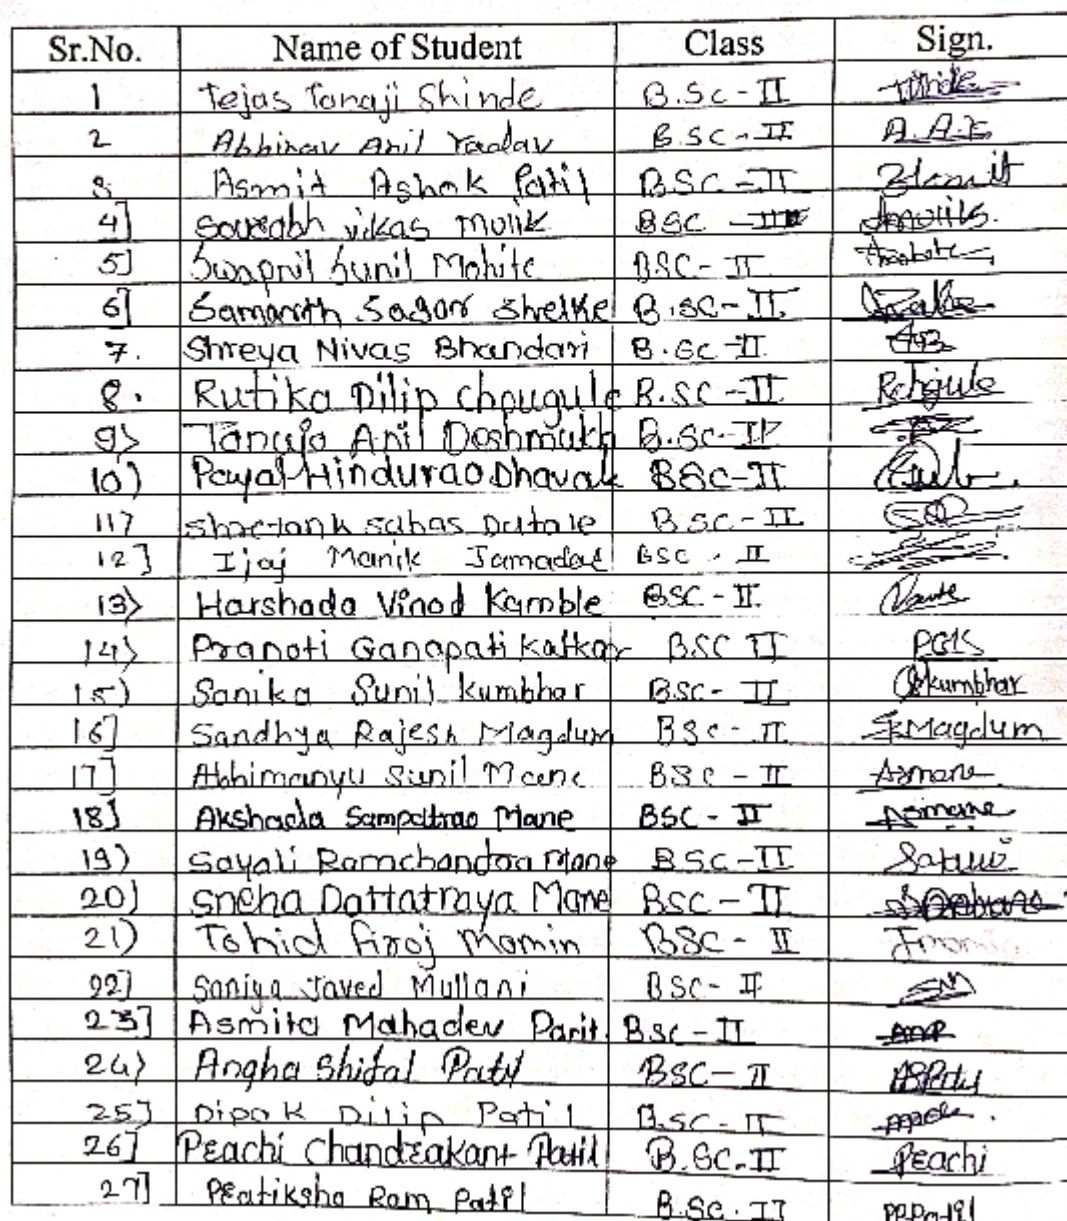 Sr.No. Name of Student Class Sign.
1 Tejas Tanaji Shinde B.Sc-II
2 Abhinav Anil Yadav B.SC-II A.A.Y.
3. Asmit Ashok Patil BSC-II
4] Sourabh vikas Mulik BSC -II
5] Swapnil Sunil Mohite BSC-II
6] Samarth Sagar Shelke B.SC-II.
7. Shreya Nivas Bhandari B.Sc-II
8. Rutika Dilip Chougule B.SC-II
9) Tanuja Anil Deshmukh B.Sc-II
10) Payal Hindurao Dhavale BSC-II
11) BSC-II
12] Ijaj Manik Jamadar BSC - II
13) Harshada Vinod Kamble BSC-II.
14) Pranoti Ganapati Katkar BSC II PGK
15) Sanika Sunil kumbhar B.SC- II Skumbhar
16] Sandhya Rajesh Magdum BSc-II. Magdum
17] Abhimanyu Sunil Mane BSc-II Asmane
18] Akshada Sampatrao Mane BSC-II Asmane
19) Sayali Ramchandra Mane BSC-II
20) Sneha Dattatraya Mane BSC-II
21) Tohid Firoj Momin BSC- II
22] Saniya Javed Mullani BSC- II SM
23] Asmita Mahadev Parit. BSC-II
24) Angha Shital Patil BSC-II
25] Dipak Dilip Patil B.SC-II
26] Prachi Chandrakant Patil B.SC-II Prachi
27] Pratiksha Ram Patil B.Sc.II